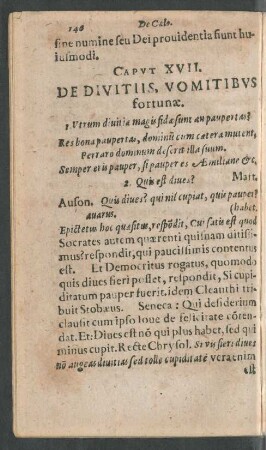 140 De Cælo.
sine numine seu Dei prouidentia siunt hu
iusmodi.
CAPVT XVII.
DE DIVITIIS, VOMITIBVS
fortunæ.
1 Vtrum diuitia magis fidæ sunt an paupertas?
Res bona paupertas, dominũ cum cætera mutent,
Perraro dominum deserit illa suum.
Semper eris pauper, si pauper es Æmiliane &c,
2. Quis est diues? Mart.
Auson. Quis diues? qui nil cupiat, quis pauper?
avarus. (habet,
Epictetus hoc quæsitus, respõdit, Cui satis est quod
Socrates autem quærenti quisnam ditissi-
mus? respondit, qui paucissimis contentus
est. Et Democritus rogatus, quomodo
quis diues fieri posset, respondit, Si cupi-
ditatum pauper fuerit. idem Cleanthi tri-
buit Stobæus. Seneca: Qui desiderium
clausit cum ipso Ioue de felicitate cõten-
dat. Et: Diues est nõ qui plus habet, sed qui
minus cupit. Recte Chrysol. Si vis fieri diues
nõ augeas diuitias sed tollo cupiditatẽ vera enim
est